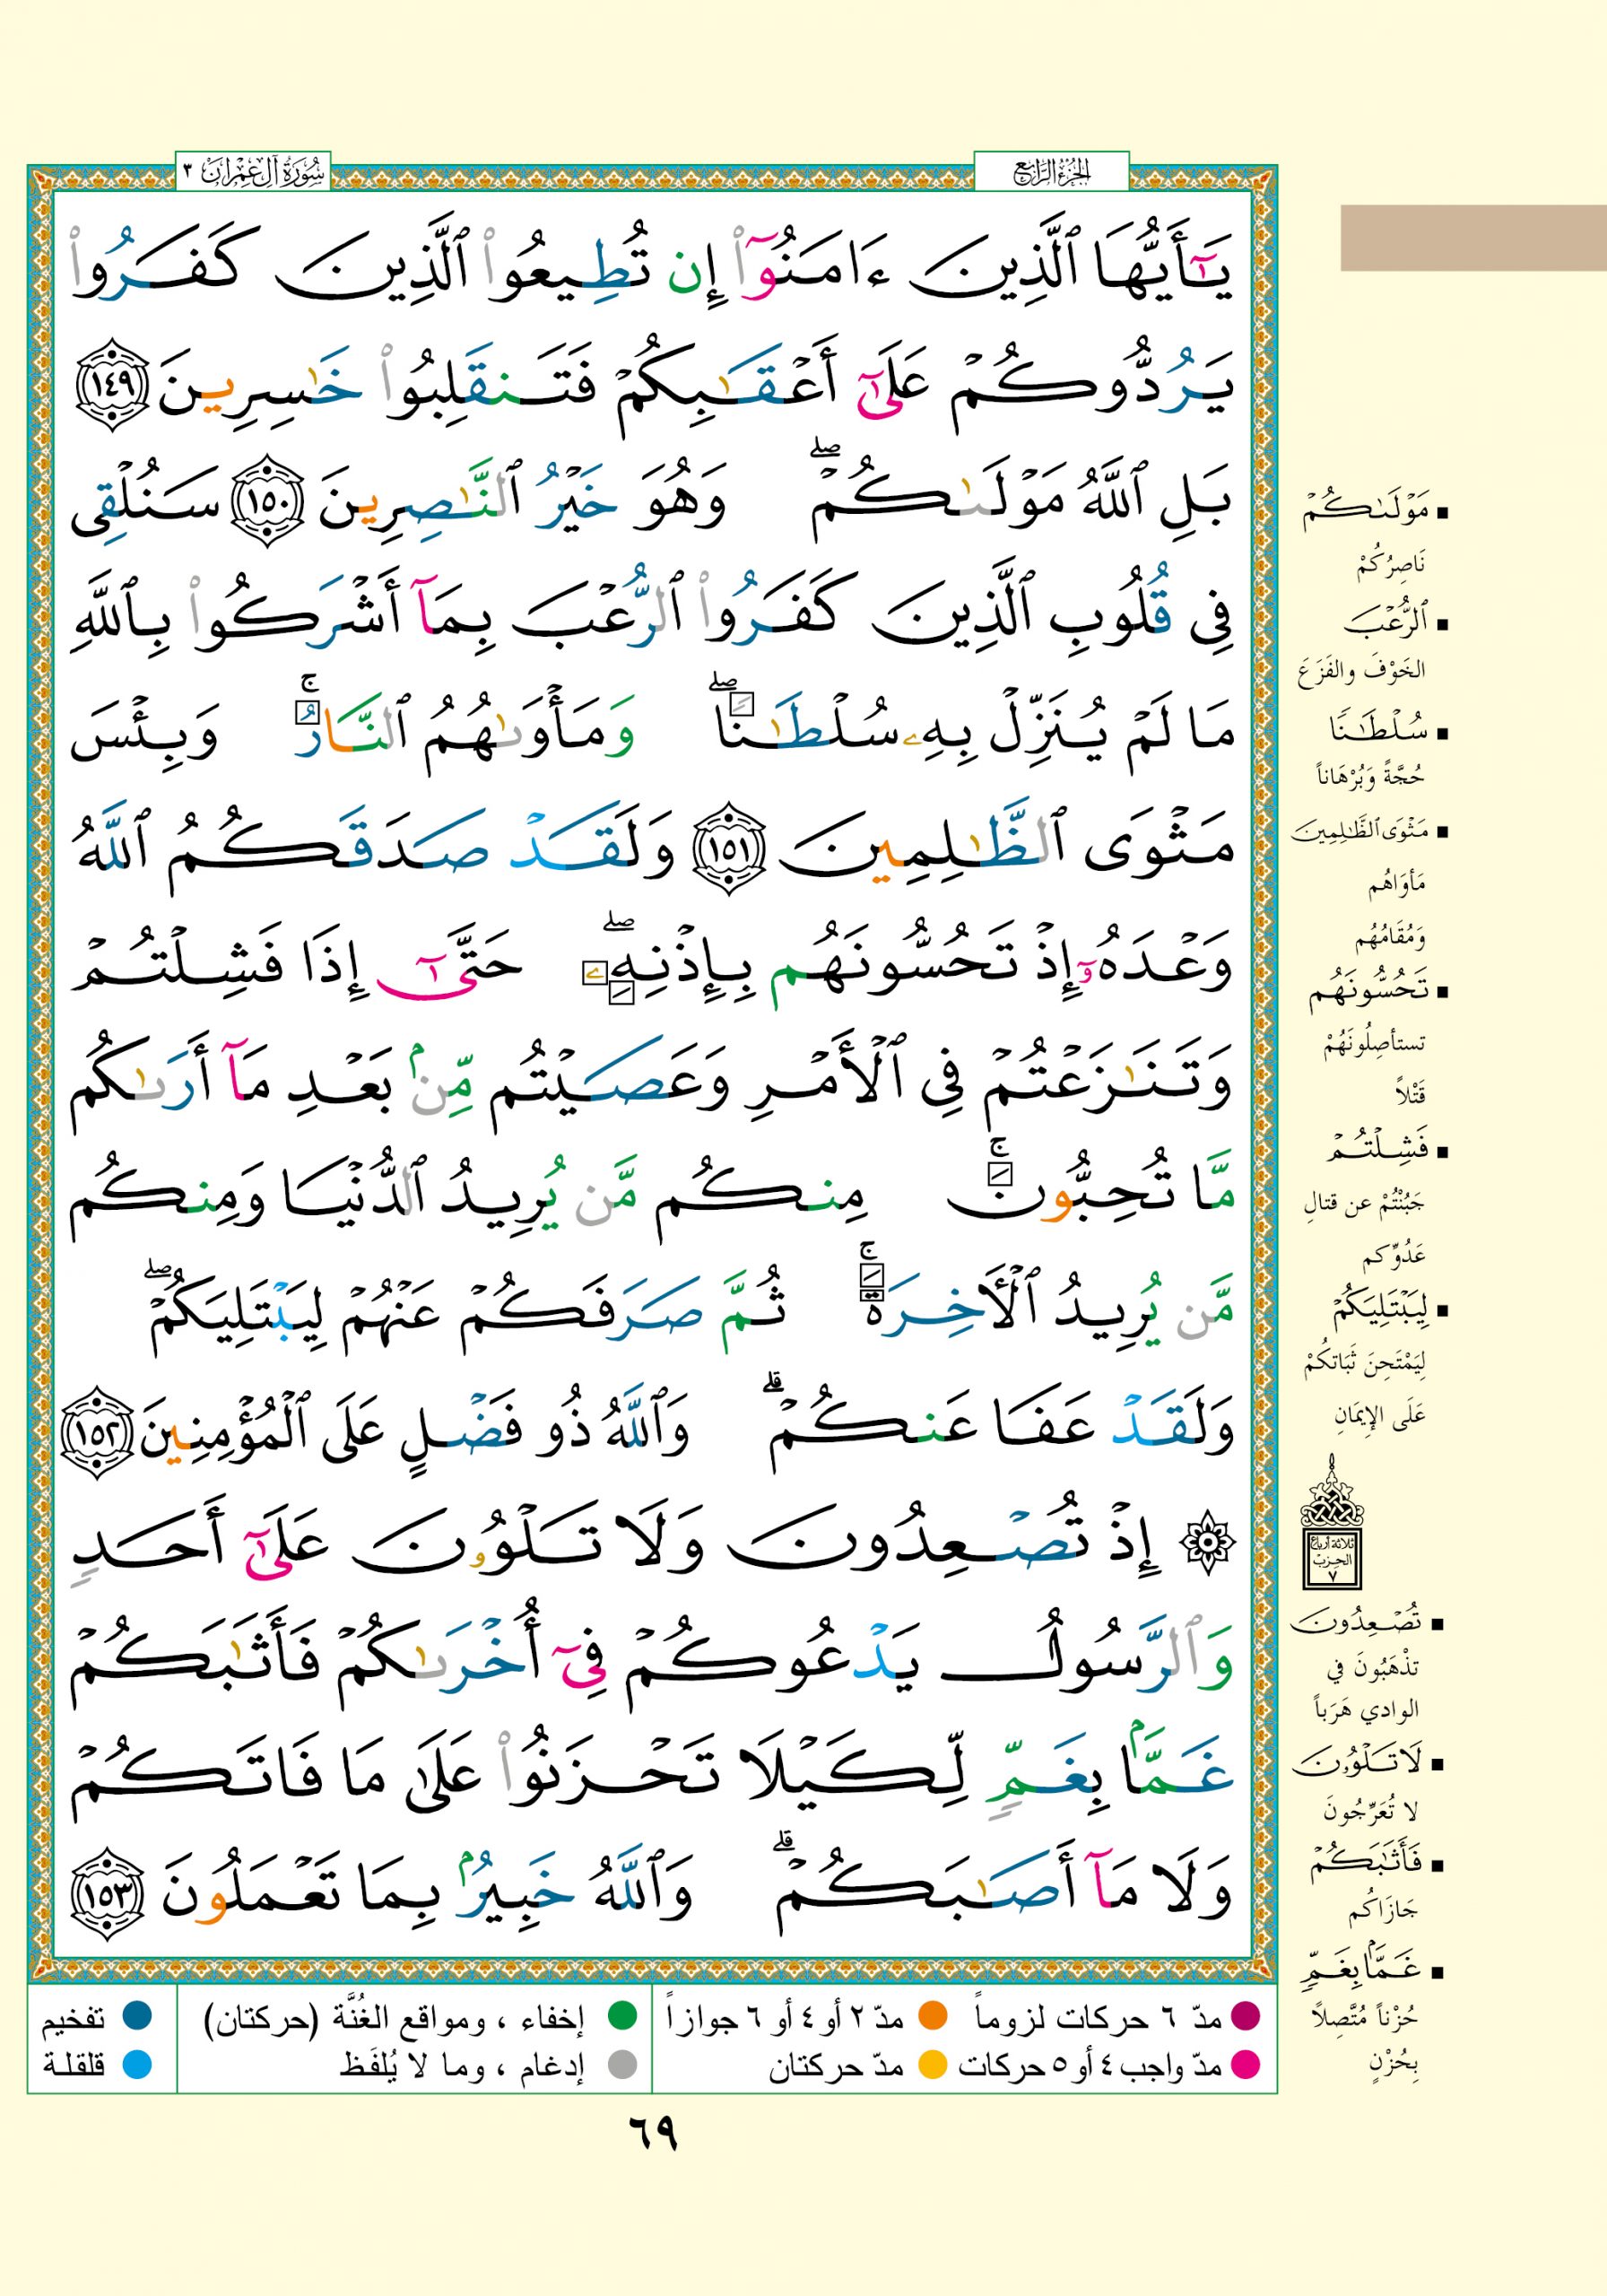 الجزء الرابع
سورة آل عمران ٣
يَـٰٓأَيُّهَا ٱلَّذِينَ ءَامَنُوٓا۟ إِن تُطِيعُوا۟ ٱلَّذِينَ كَفَرُوا۟
يَرُدُّوكُمْ عَلَىٰٓ أَعْقَـٰبِكُمْ فَتَنقَلِبُوا۟ خَـٰسِرِينَ ١٤٩
بَلِ ٱللَّهُ مَوْلَىٰكُمْ ۖ وَهُوَ خَيْرُ ٱلنَّـٰصِرِينَ ١٥٠ سَنُلْقِى
فِى قُلُوبِ ٱلَّذِينَ كَفَرُوا۟ ٱلرُّعْبَ بِمَآ أَشْرَكُوا۟ بِٱللَّهِ
مَا لَمْ يُنَزِّلْ بِهِۦ سُلْطَـٰنًا ۖ وَمَأْوَىٰهُمُ ٱلنَّارُ ۚ وَبِئْسَ
مَثْوَى ٱلظَّـٰلِمِينَ ١٥١ وَلَقَدْ صَدَقَكُمُ ٱللَّهُ
وَعْدَهُۥٓ إِذْ تَحُسُّونَهُم بِإِذْنِهِۦ ۖ حَتَّىٰٓ إِذَا فَشِلْتُمْ
وَتَنَـٰزَعْتُمْ فِى ٱلْأَمْرِ وَعَصَيْتُم مِّنۢ بَعْدِ مَآ أَرَىٰكُم
مَّا تُحِبُّونَ ۚ مِنكُم مَّن يُرِيدُ ٱلدُّنْيَا وَمِنكُم
مَّن يُرِيدُ ٱلْـَٔاخِرَةَ ۚ ثُمَّ صَرَفَكُمْ عَنْهُمْ لِيَبْتَلِيَكُمْ ۖ
وَلَقَدْ عَفَا عَنكُمْ ۗ وَٱللَّهُ ذُو فَضْلٍ عَلَى ٱلْمُؤْمِنِينَ ١٥٢
۞ إِذْ تُصْعِدُونَ وَلَا تَلْوُۥنَ عَلَىٰٓ أَحَدٍ
وَٱلرَّسُولُ يَدْعُوكُمْ فِىٓ أُخْرَىٰكُمْ فَأَثَـٰبَكُمْ
غَمًّۢا بِغَمٍّ لِّكَيْلَا تَحْزَنُوا۟ عَلَىٰ مَا فَاتَكُمْ
وَلَا مَآ أَصَـٰبَكُمْ ۗ وَٱللَّهُ خَبِيرٌۢ بِمَا تَعْمَلُونَ ١٥٣
مَوْلَىٰكُمْ
نَاصِرُكُمْ
ٱلرُّعْبَ
الخَوْفَ والفَزَعَ
سُلْطَـٰنًا
حُجَّةً وَبُرْهَاناً
مَثْوَى ٱلظَّـٰلِمِينَ
مَأوَاهُم
وَمُقَامُهُم
تَحُسُّونَهُم
تستأصِلُونَهُمْ
قَتْلاً
فَشِلْتُمْ
جَبُنْتُمْ عن قتالِ
عَدُوِّكم
لِيَبْتَلِيَكُمْ
لِيَمْتَحِنَ ثَبَاتكُمْ
عَلَى الإِيمَانِ
ثلاثة أرباع
الحزب
٧
تُصْعِدُونَ
تذْهَبُونَ في
الوادي هَرَباً
لَا تَلْوُۥنَ
لا تُعَرِّجُونَ
فَأَثَـٰبَكُمْ
جَازَاكُم
غَمًّۢا بِغَمٍّ
حُزْناً مُتَّصِلاً
بِحُزْنٍ
مدّ ٦ حركات لزوماً مدّ ٢ أو ٤ أو ٦ جوازاً إخفاء ، ومواقع الغُنَّة (حركتان) تفخيم
مدّ واجب ٤ أو ٥ حركات مدّ حركتان إدغام ، وما لا يُلفَظ قلقلة
٦٩